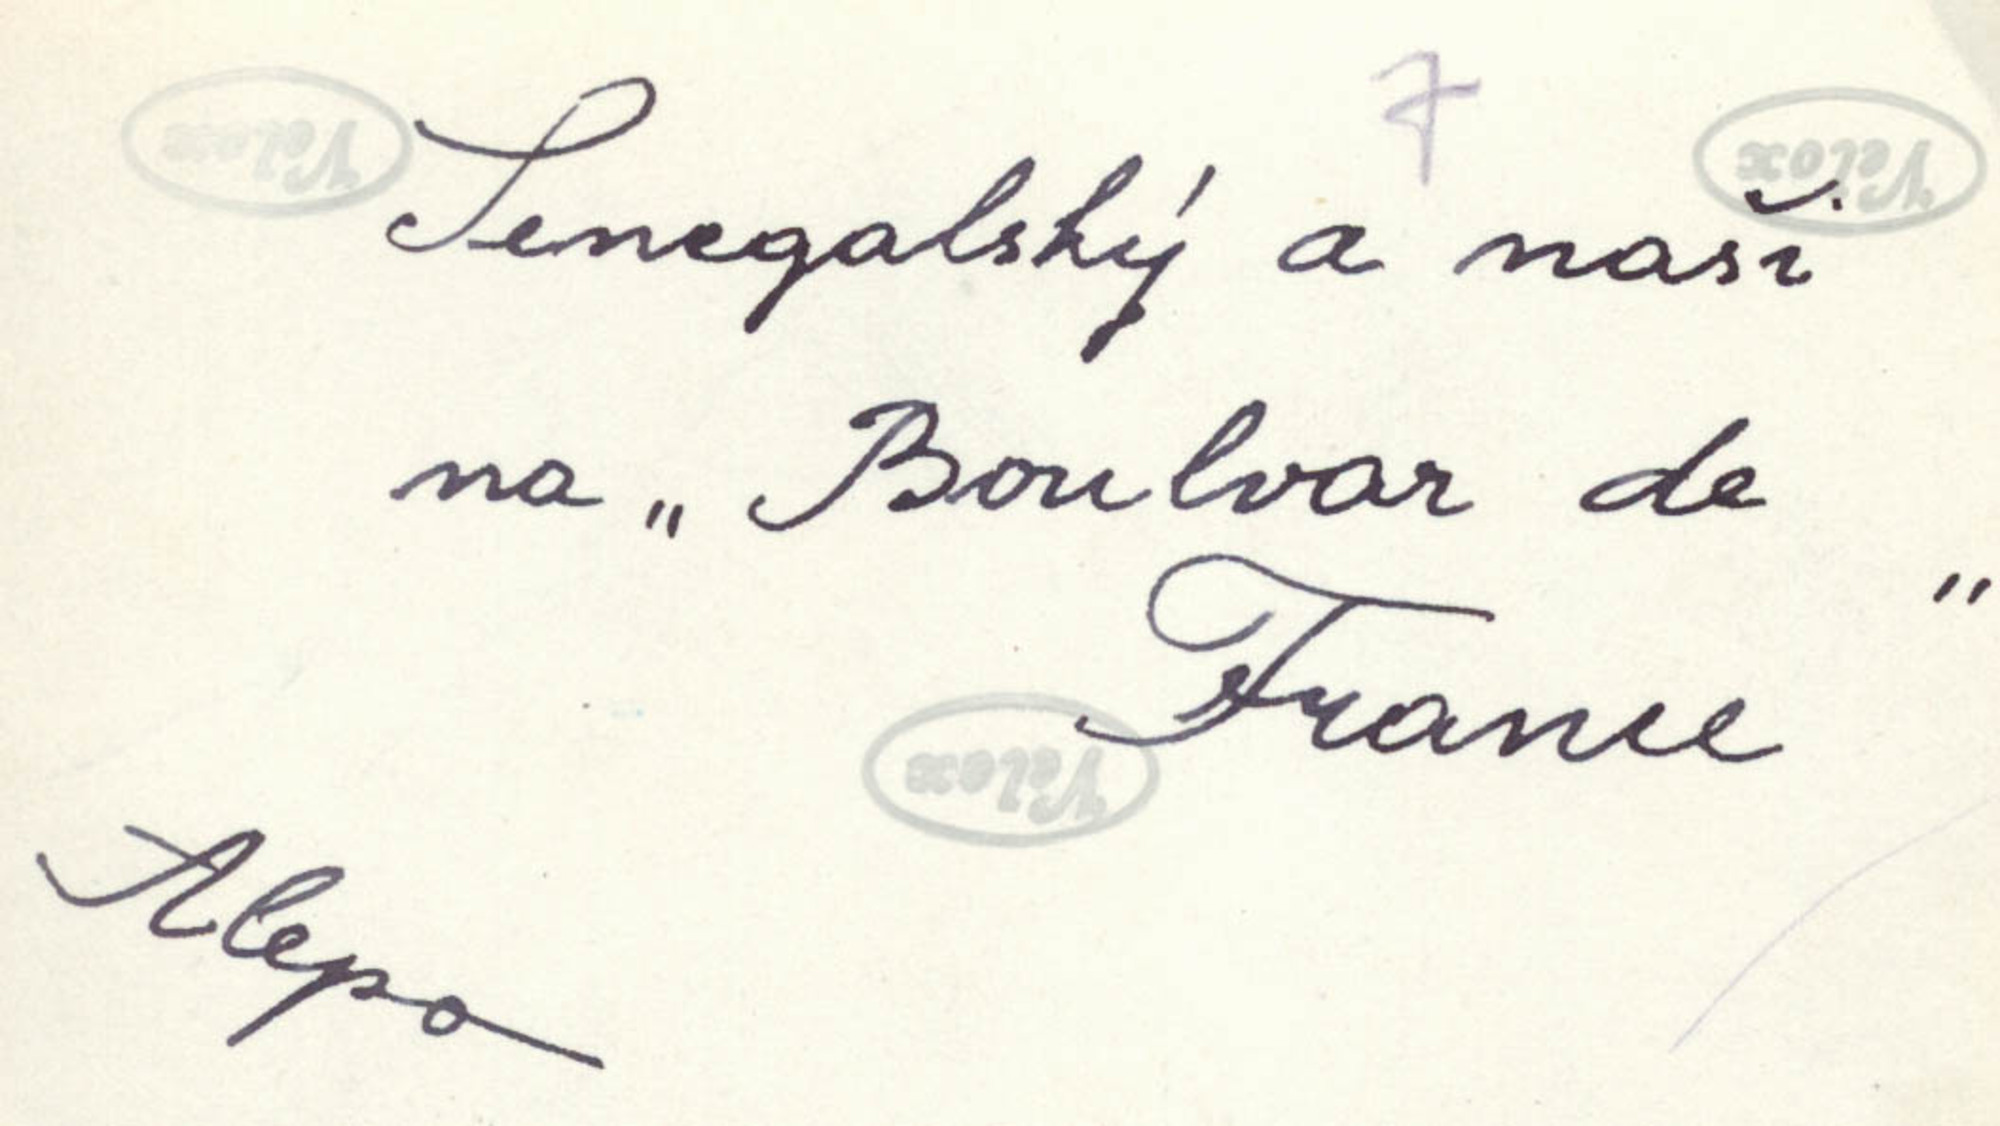 7
Velox
Velox
Senegalský a naši
na „Boulvar de
France"
Velox
Alepo